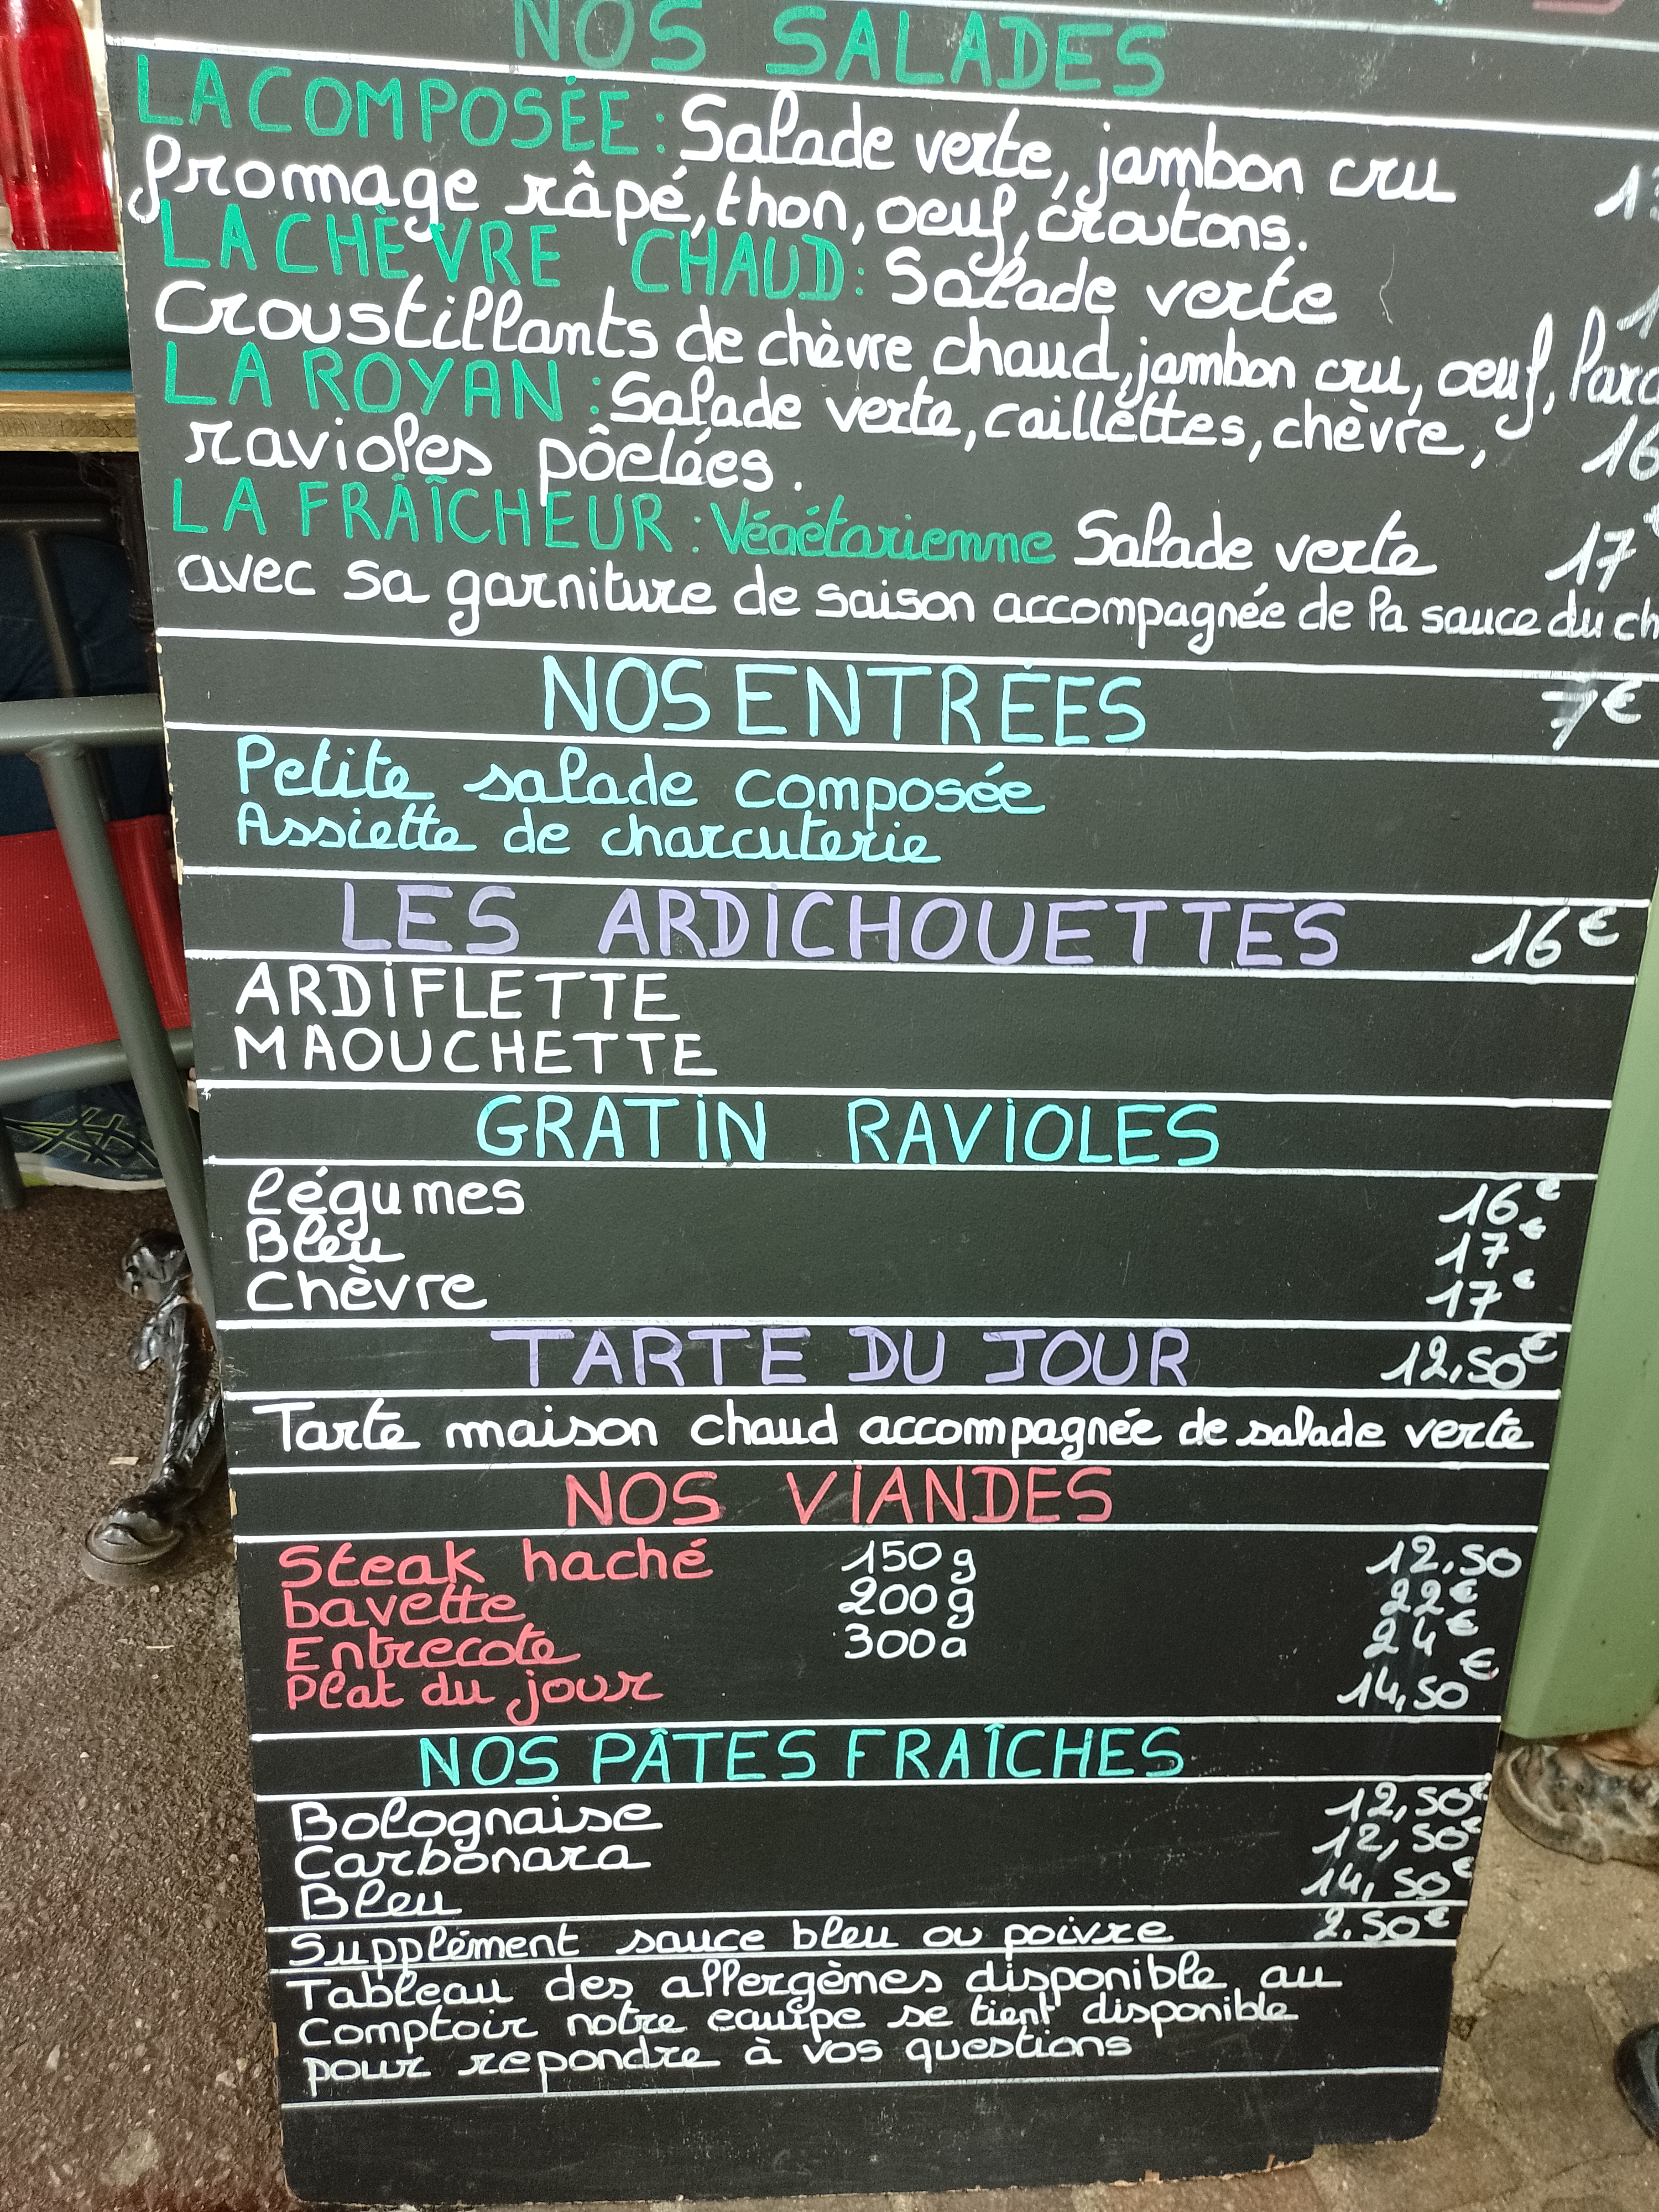 NOS SALADES
LA COMPOSÉE : Salade verte, jambon cru
fromage râpé, thon, oeuf, croutons.
LA CHÈVRE CHAUD : Salade verte
Croustillants de chèvre chaud, jambon cru, oeuf,
LA ROYAN : Salade verte, caillettes, chèvre, 16
ravioles pôelées.
LA FRAÎCHEUR : Végétarienne Salade verte 17€
avec sa garniture de saison accompagnée de la sauce du
NOS ENTRÉES 7€
Petite salade composée
Assiette de charcuterie
LES ARDICHOUETTES 16€
ARDIFLETTE
MAOUCHETTE
GRATIN RAVIOLES
légumes 16€
Bleu 17€
Chèvre 17€
TARTE DU JOUR 12,50€
Tarte maison chaud accompagnée de salade verte
NOS VIANDES
Steak haché 150g 12.50
bavette 200g 22€
Entrecote 300g 24€
Plat du jour 14,50€
NOS PÂTES FRAÎCHES
Bolognaise 12,50€
Carbonara 12,50€
Bleu 14,50€
Supplément sauce bleu ou poivre 2.50€
Tableau des allergèmes disponible au
Comptoir notre equipe se tient disponible
pour repondre à vos questions